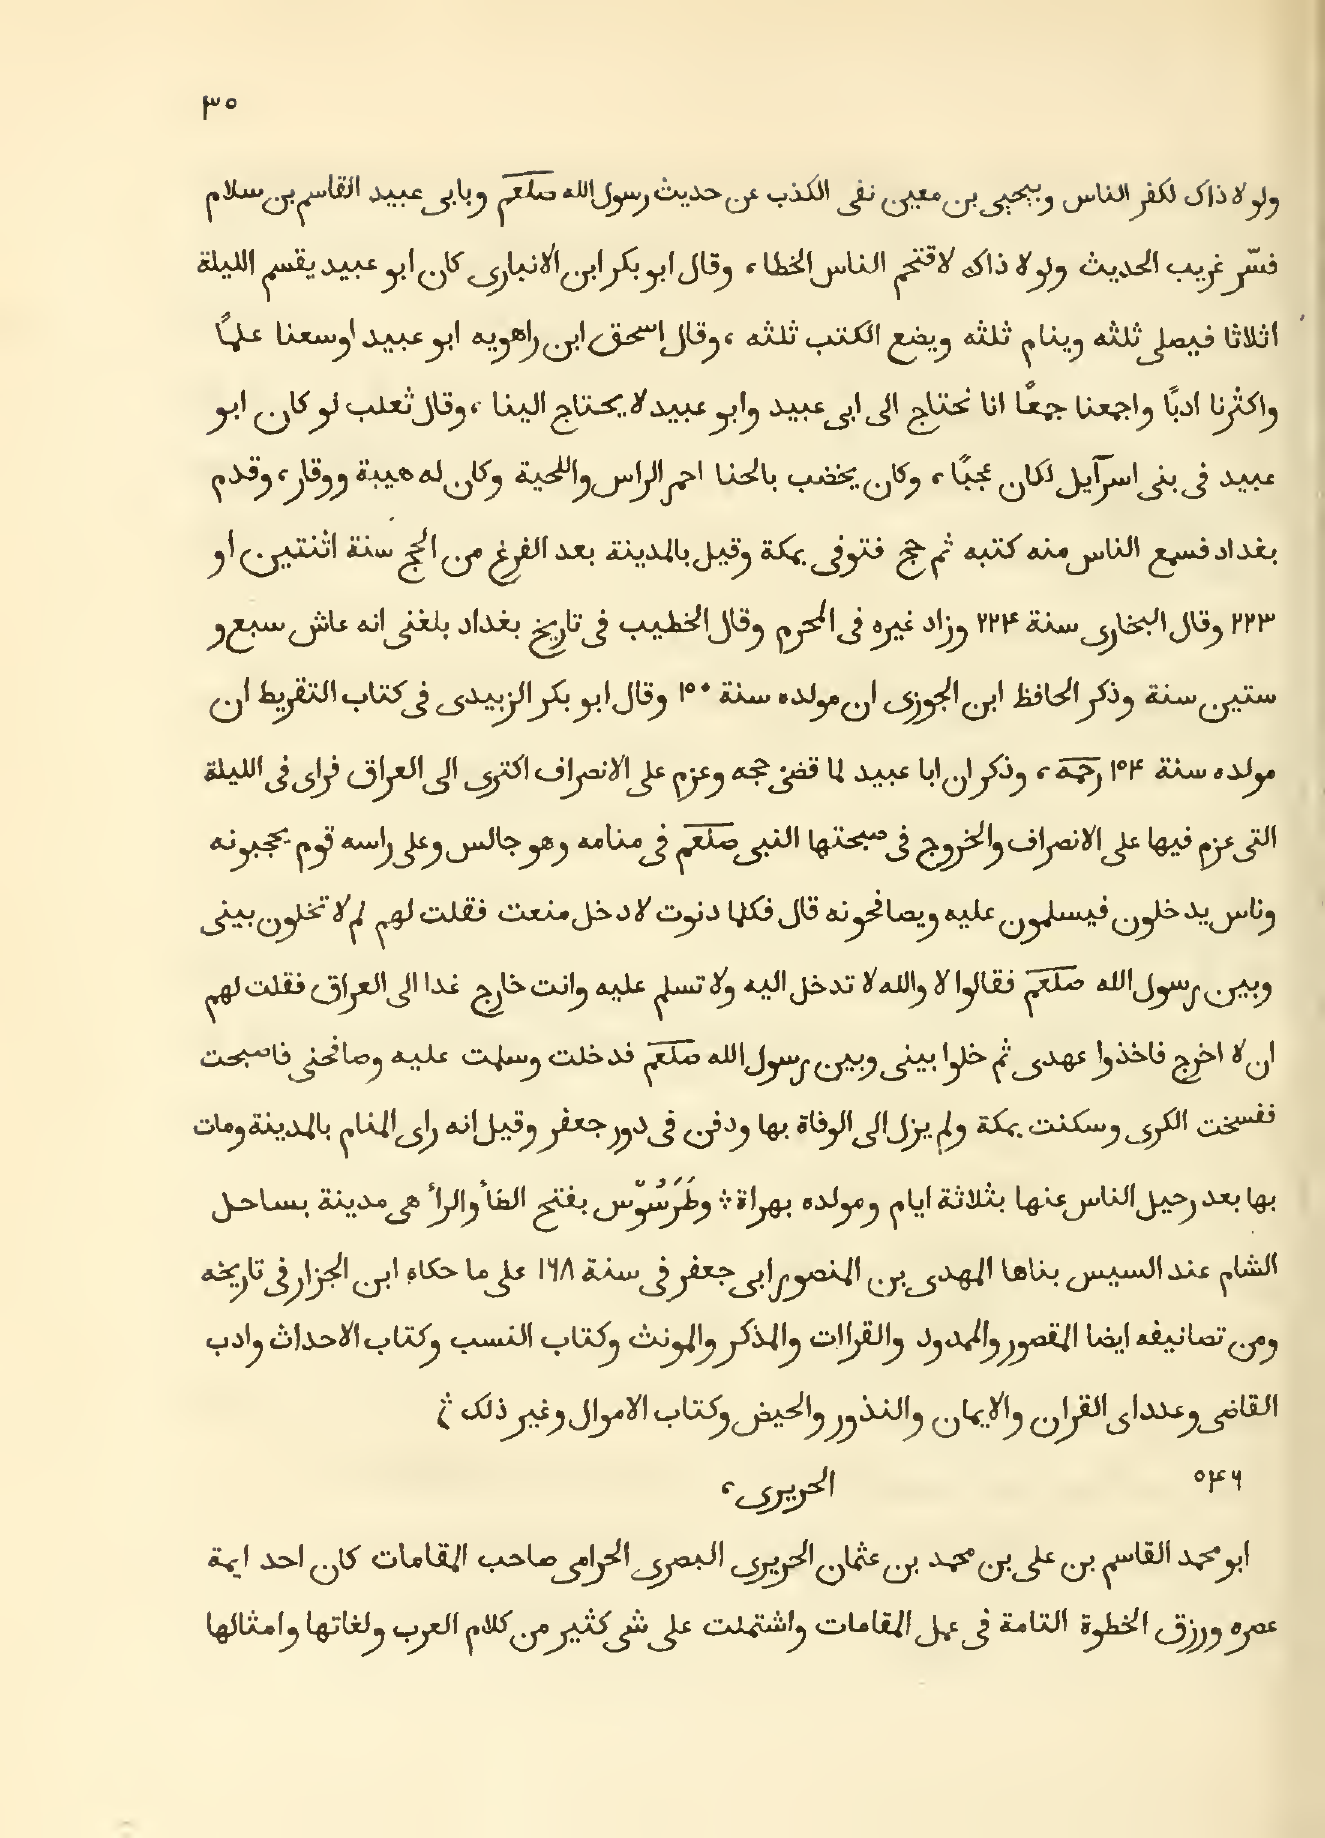 ٣٥
ولولا ذاك لكفر الناس وبيحيى بن معين نفى الكذب عن حديث رسول الله صلعم وبابى عبيد القاسم بن سلام
فسّر غريب الحديث ولولا ذاك لاقتحم الناس الخطاء، وقال ابو بكر ابن الانبارى كان ابو عبيد يقسم الليلة
اثلاثا فيصلى ثلثه وينام ثلثه ويضع الكتب ثلثه، وقال اسحق ابن راهويه ابو عبيد اوسعنا علمًا
واكثرنا ادبًا واجمعنا جمعًا انا نحتاج الى ابى عبيد وابو عبيد لا يحتاج الينا، وقال ثعلب لو كان ابو
عبيد فى بنى اسرآيل لكان عجبًا، وكان يخضب بالحنا احمر الراس واللحية وكان له هيبة ووقار، وقدم
بغداد فسمع الناس منه كتبه ثم حج فتوفى بمكة وقيل بالمدينة بعد الفرغ من الحج سنة اثنتين او
٢٢٣ وقال البخارى سنة ٢٢۴ وزاد غيره فى المحرم وقال الخطيب فى تاريخ بغداد بلغنى انه عاش سبع و
ستين سنة وذكر الحافظ ابن الجوزى ان مولده سنة ١٥٠ وقال ابو بكر الزبيدى فى كتاب التقريط ان
مولده سنة ١٥۴ رحمه، وذكر ان ابا عبيد لما قضى حجه وعزم على الانصراف اكترى الى العراق فراى فى الليلة
التى عزم فيها على الانصراف والخروج فى صبحتها النبى صلعم فى منامه وهو جالس وعلى راسه قوم يحجبونه
وناس يدخلون فيسلمون عليه ويصافحونه قال فكلما دنوت لادخل منعت فقلت لهم لم لا تخلون بينى
وبين رسول الله صلعم فقالوا لا والله لا تدخل اليه ولا تسلم عليه وانت خارج غدا الى العراق فقلت لهم
ان لا اخرج فاخذوا عهدى ثم خلوا بينى وبين رسول الله صلعم فدخلت وسلمت عليه وصافحنى فاصبحت
ففسخت الكرى وسكنت بمكة ولم يزل الى الوفاة بها ودفن فى دور جعفر وقيل انه راى المنام بالمدينة ومات
بها بعد رحيل الناس عنها بثلاثة ايام ومولده بهراة ❊ وطَرَسُوْس بفتح الطأ والرأ هى مدينة بساحل
الشام عند السيس بناها المهدى بن المنصور ابى جعفر فى سنة ١٦٨ على ما حكاه ابن الجزار فى تاريخه
ومن تصانيفه ايضا المقصور والممدود والقراات والمذكر والمونث وكتاب النسب وكتاب الاحداث وادب
القاضى وعدد اى القران والايمان والنذور والحيض وكتاب الاموال وغير ذلك ؞
٥۴٦ الحريرى،
ابو محمد القاسم بن على بن محمد بن عثمان الحريرى البصرى الحرامى صاحب المقامات كان احد ايمة
عصره ورزق الخطوة التامة فى عمل المقامات واشتملت على شى كثير من كلام العرب ولغاتها وامثالها